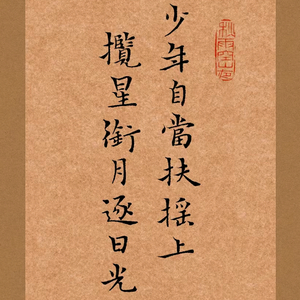 少年自當扶搖上
攬星衘月逐日光